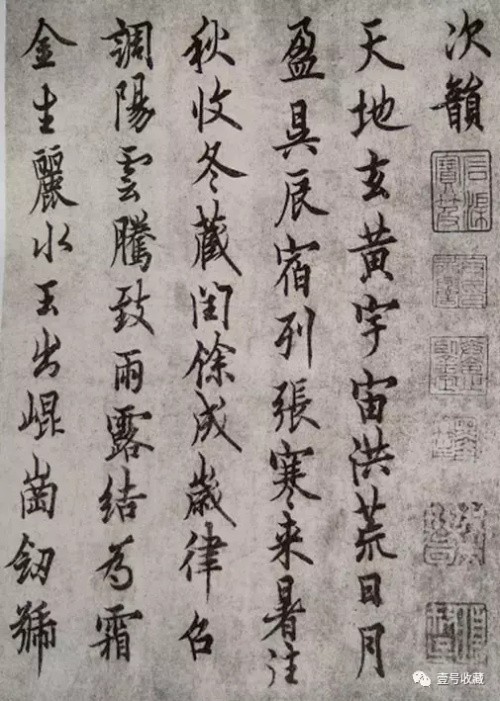 次韻
天地玄黃宇宙洪荒日月
盈昃辰宿列張寒来暑往
秋收冬藏閏餘成歲律召
調陽雲騰致雨露結為霜
金生麗水玉出崐崗釼號
壹号收藏